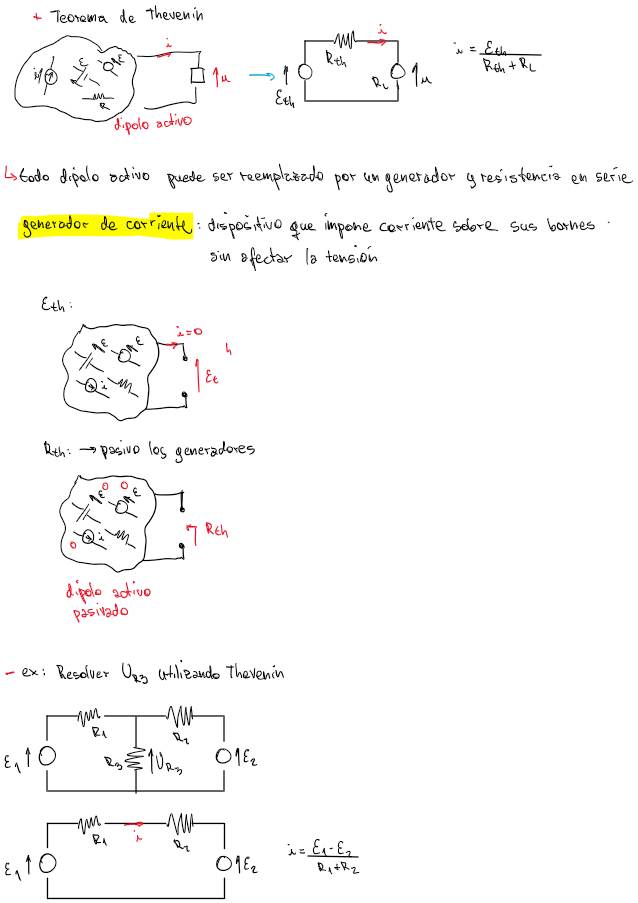 + Teorema de Thevenin
i i ε ε R u
dipolo activo
Rth i Eth RL u
i = Eth / Rth + RL
↳ todo dipolo activo puede ser reemplazado por un generador y resistencia en serie
generador de corriente: dispositivo que impone corriente sobre sus bornes
sin afectar la tensión
Eth:
ε ε i i=0 Et
Rth: → pasivo los generadores
0 0 ε ε i 0 Rth
dipolo activo
pasivado
- ex: Resolver UR3 utilizando Thevenin
R1 R2
E1 R3 UR3 E2
R1 i R2
E1 E2
i = E1 - E2 / R1 + R2